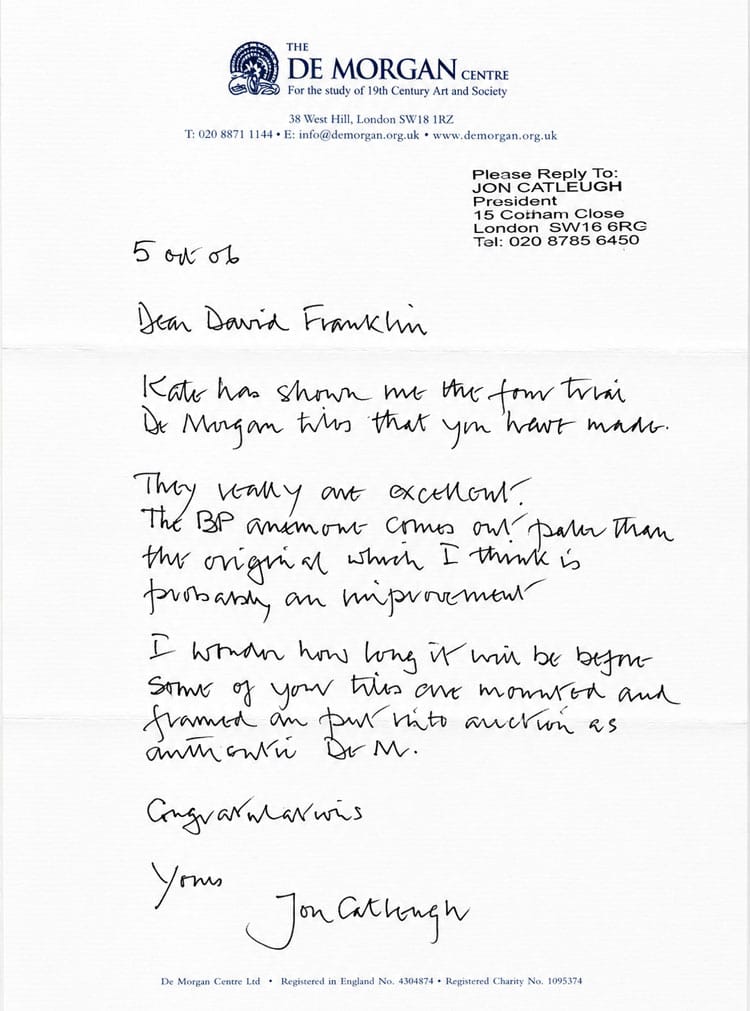 THE
DE MORGAN CENTRE
For the study of 19th Century Art and Society
38 West Hill, London SW18 1RZ
T: 020 8871 1144 • E: info@demorgan.org.uk • www.demorgan.org.uk
Please Reply To:
JON CATLEUGH
President
15 Cotham Close
London SW16 6RG
Tel: 020 8785 6450
5 Oct 06
Dear David Franklin
Kate has shown me the four trial
De Morgan tiles that you have made.
They really are excellent.
The BP anemone comes out paler than
the original which I think is
probably an improvement
I wonder how long it will be before
some of your tiles are mounted and
framed an put into auction as
authentic De M.
Congratulations
Yours
Jon Catleugh
De Morgan Centre Ltd • Registered in England No. 4304874 • Registered Charity No. 1095374